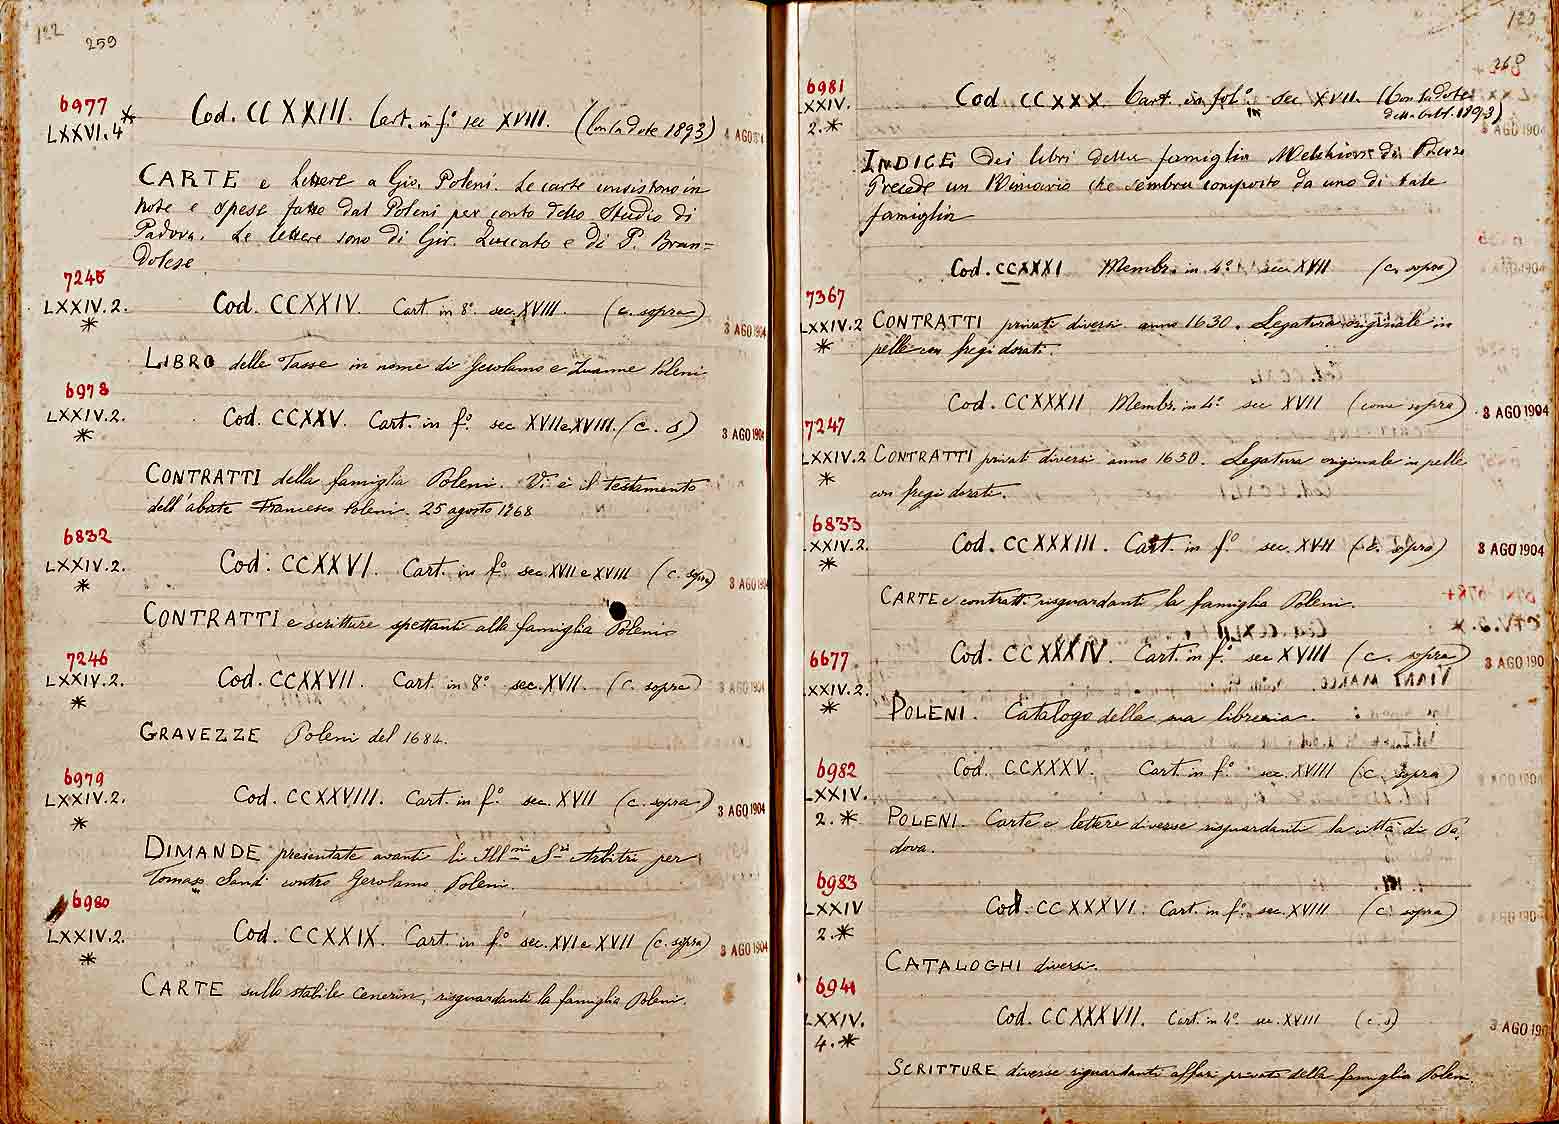 122
259
6977
LXXVI.4*
Cod. CCXXIII. Cart. in f.° sec XVIII. (Con la dote 1893)
4 AGO
CARTE e lettere a Gio. Poleni. Le carte consistono in
note e spese fatte dal Poleni per conto dello Studio di
Padova. Le lettere sono di Gir. Zuccato e di P. Bran=
dolese
7245
LXXIV.2.
*
Cod. CCXXIV. Cart. in 8° sec. XVIII. (c. sopra)
3 AGO 1904
LIBRO delle Tasse in nome di Gerolamo e Zuanne Poleni
6978
LXXIV.2.
*
Cod. CCXXV. Cart. in f.° sec XVII e XVIII. (c. s)
3 AGO 1904
CONTRATTI della famiglia Poleni. Vi è il testamento
dell'abate Francesco Poleni. 25 agosto 1768
6832
LXXIV.2.
*
Cod. CCXXVI. Cart. in f.° sec. XVII e XVIII (c. sopra)
3 AGO 1904
CONTRATTI e scritture spettanti alla famiglia Poleni
7246
LXXIV.2.
*
Cod. CCXXVII. Cart. in 8° sec. XVII. (c. sopra)
3 AGO 1904
GRAVEZZE Poleni del 1684.
6979
LXXIV.2.
*
Cod. CCXXVIII. Cart. in f.° sec. XVII (c. sopra)
3 AGO 1904
DIMANDE presentate avanti li Ill.mi S.ri Arbitri per
Tomaso Sandi contro Gerolamo Poleni.
6980
LXXIV.2.
*
Cod. CCXXIX. Cart. in f.° sec. XVI e XVII (c. sopra)
3 AGO 1904
CARTE sullo stabile Cenerin, risguardanti la famiglia Poleni.
123
260
6981
LXXIV.
2.*
Cod CCXXX Cart. in fol.° sec XVII. (Con la dote
della bibl. 1893)
AGO 1904
INDICE dei libri della famiglia Melchiori di
Precede un Rimario che sembra composto da uno di tale
famiglia
Cod. CCXXXI Membr. in 4° sec XVII (c. sopra)
AGO 1904
7367
LXXIV.2
*
CONTRATTI privati diversi anno 1630. Legatura originale in
pelle con fregi dorati.
Cod. CCXXXII Membr. in 4° sec XVII (come sopra)
3 AGO 1904
7247
LXXIV.2
*
CONTRATTI privati diversi anno 1630. Legatura originale in pelle
con fregi dorati.
6833
LXXIV.2.
*
Cod. CCXXXIII. Cart. in f.° sec. XVII (c. sopra)
3 AGO 1904
CARTE e contratti risguardanti la famiglia Poleni.
6677
LXXIV.2.
*
Cod. CCXXXIV. Cart. in f.° sec XVIII (c. sopra)
3 AGO 190
POLENI. Catalogo della sua libreria.
6982
LXXIV.
2.*
Cod. CCXXXV. Cart. in f.° sec. XVIII (c. sopra)
AGO 1904
POLENI. Carte e lettere diverse risguardanti la città di Pa-
dova.
6983
LXXIV
2.*
Cod. CCXXXVI. Cart. in f.° sec. XVIII (c. sopra)
AGO 190
CATALOGHI diversi.
6941
LXXIV.
4.*
Cod. CCXXXVII. Cart. in 4° sec. XVIII (c. s)
3 AGO 190
SCRITTURE diverse riguardanti affari privati della famiglia Poleni